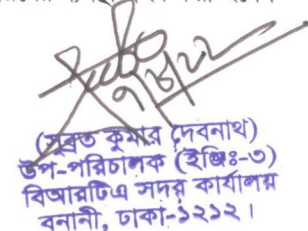 ৭/৮/২২
(সুব্রত কুমার দেবনাথ)
উপ-পরিচালক (ইঞ্জিঃ-৩)
বিআরটিএ সদর কার্যালয়
বনানী, ঢাকা-১২১২।